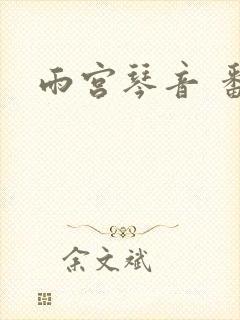 雨宫琴音
余文斌